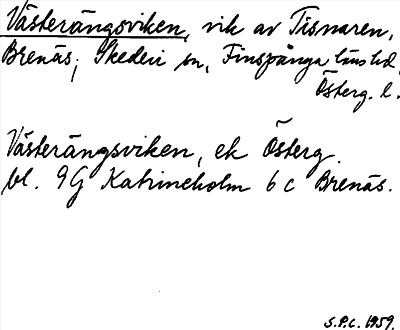 Västerängsviken, vik av Tisnaren,
Brenäs, Skedevi sn, Finspånga läns hd,
Österg. l.
Västerängsviken, ek Österg.
bl. 9G Katrineholm 6 c Brenäs.
S.P.C. 1959.